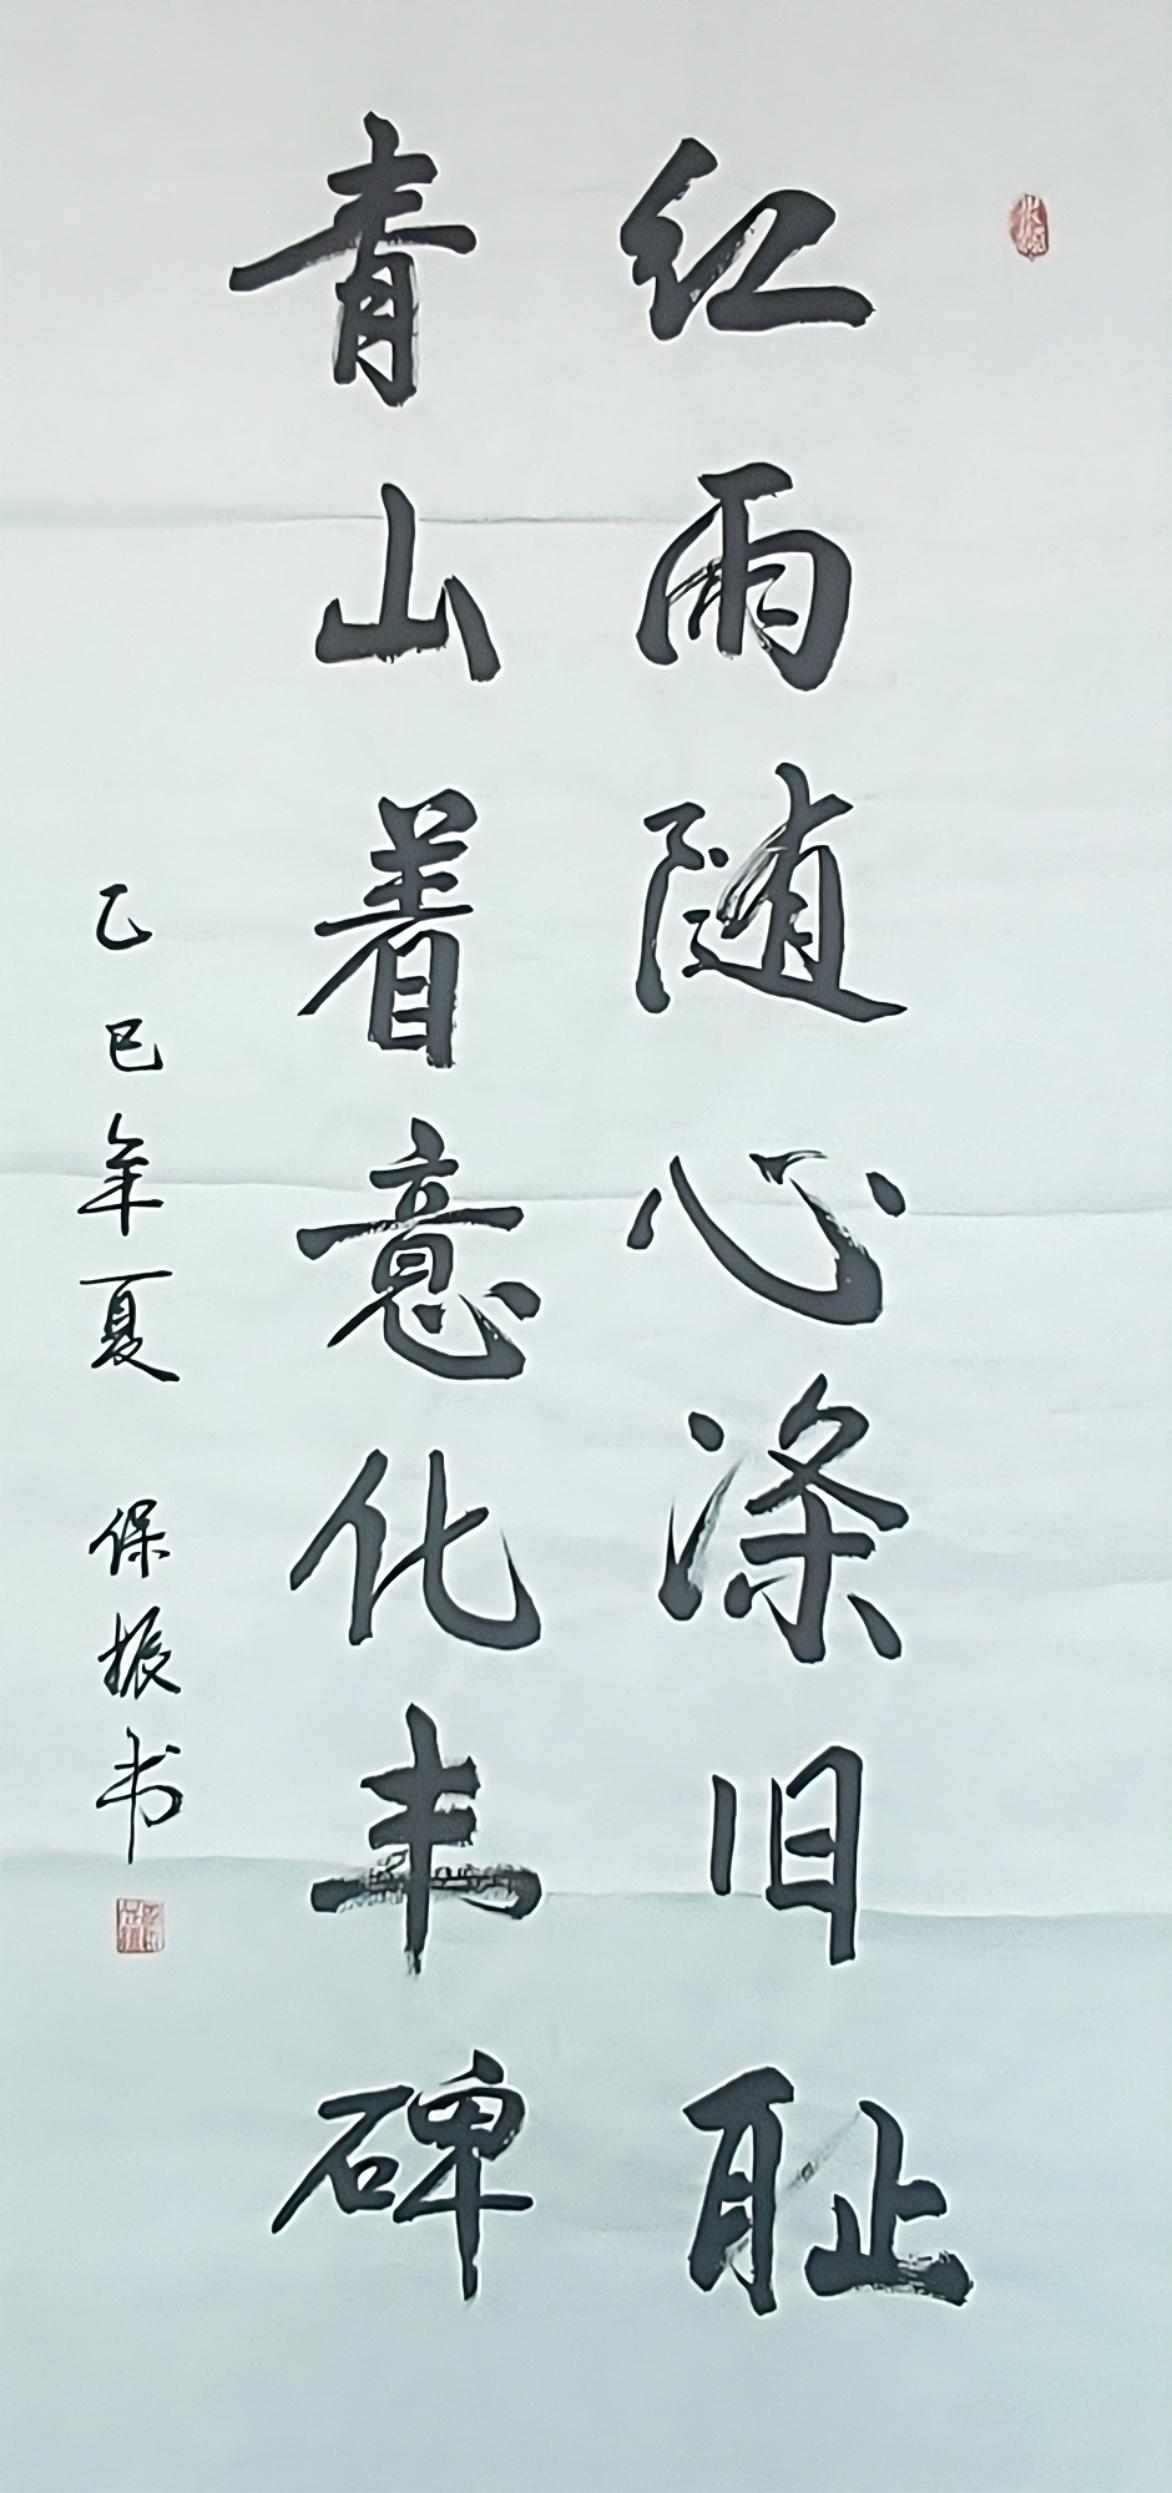 红雨随心涤旧耻
青山着意化丰碑
乙巳年夏 保振书